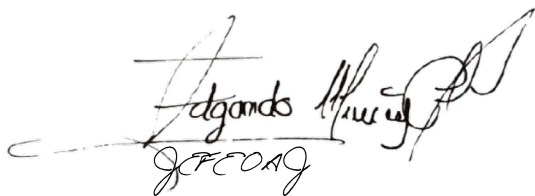 Edgardo Muñoz
JEFE OAJ